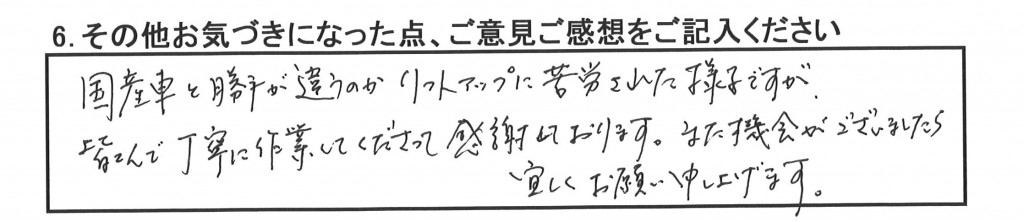 6.その他お気づきになった点、ご意見ご感想をご記入ください
国産車と勝手が違うのか リフトアップに苦労された様子ですが、
皆さんで丁寧に作業してくださって感謝しております。また機会がございましたら
宜しくお願い申し上げます。